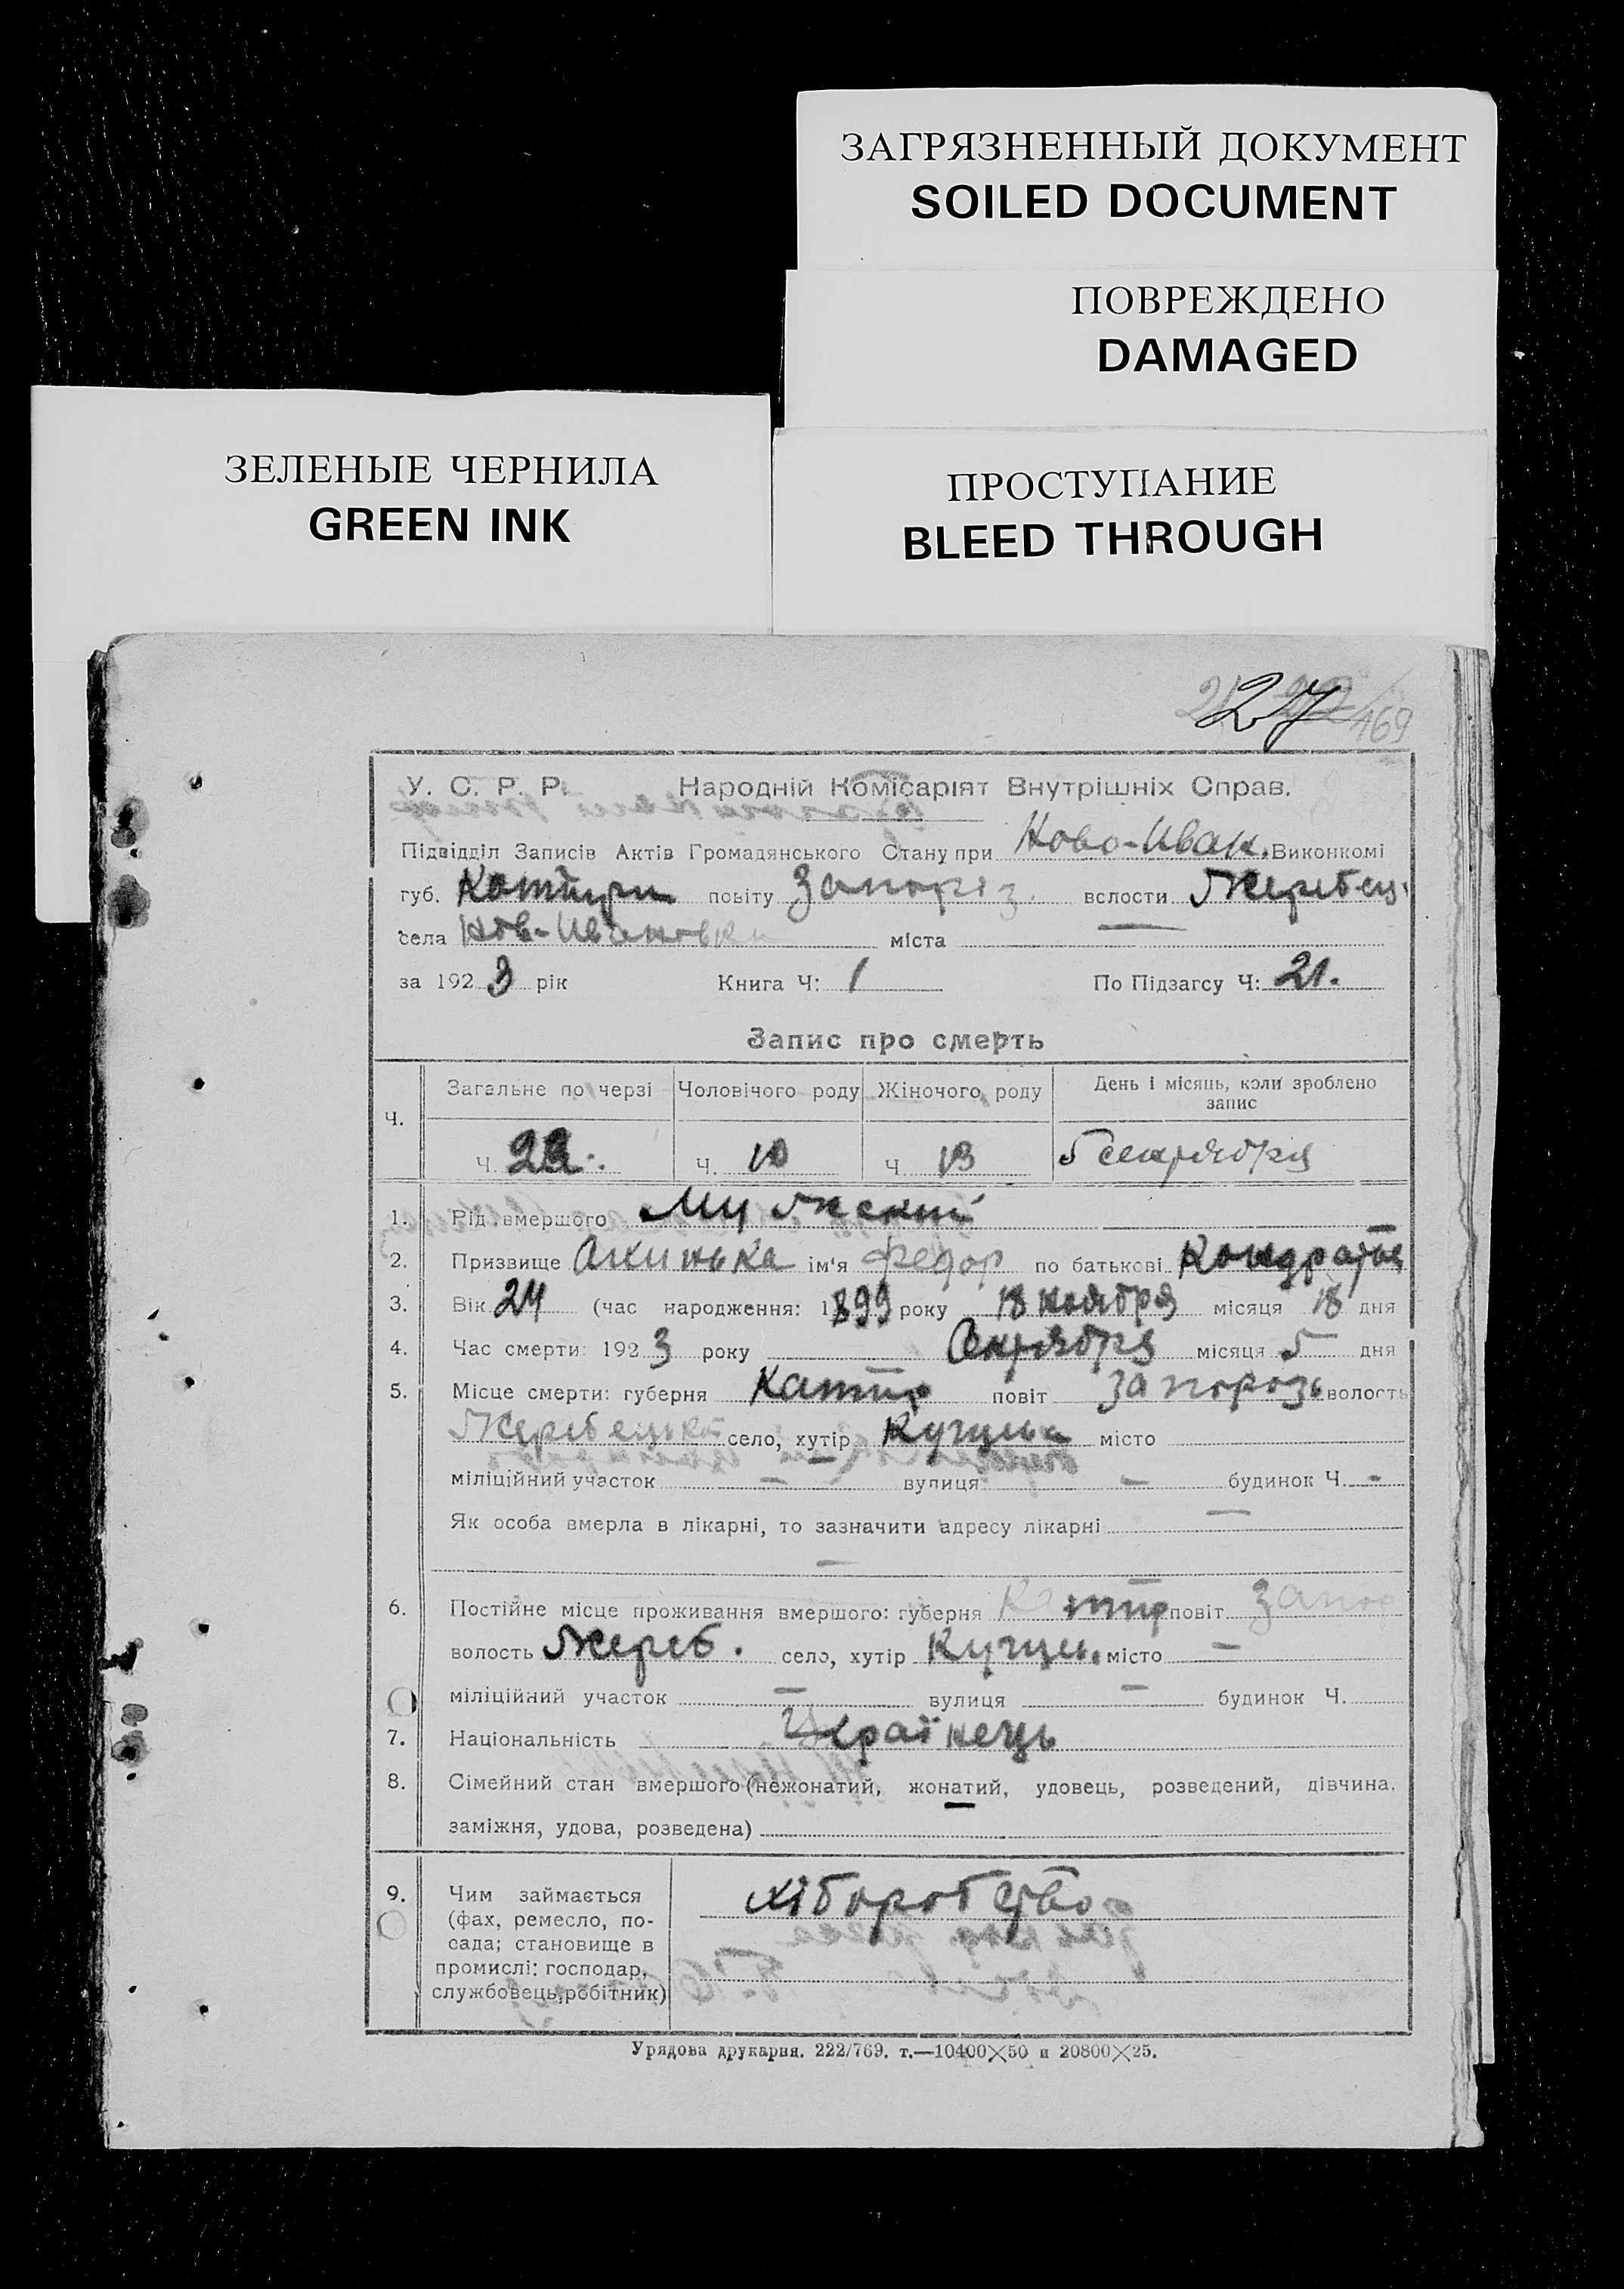 ЗАГРЯЗНЕННЫЙ ДОКУМЕНТ
SOILED DOCUMENT
ПОВРЕЖДЕНО
DAMAGED
ЗЕЛЕНЫЕ ЧЕРНИЛА
GREEN INK
ПРОСТУПАНИЕ
BLEED THROUGH
27
169
У. С. Р. Р. Народній Комісаріят Внутрішніх Справ.
Підвідділ Записів Актів Громадянського Стану при Ново-Иван. Виконкомі
губ. повіту Запоріз. вслости Жеребец.
села Нов-Ивановки міста —
за 1923 рік Книга Ч: 1 По Підзагсу Ч: 21.
Запис про смерть
Ч. Загальне по черзі Чоловічого роду Жіночого роду День і місяць, коли зроблено
запис
Ч. Ч. 10 Ч. 13 5 сентября
1. Рід вмершого Мужский —
2. Призвище ім'я Федор по батькові
3. Вік 24 (час народження: 1899 року 18 ноября місяця 18 дня
4. Час смерти: 1923 року Сентября місяця 5 дня
5. Місце смерти: губерня Каттр повіт Запорозь волость
Жеребецька село, хутір місто
міліційний участок — вулиця — будинок Ч. -
Як особа вмерла в лікарні, то зазначити адресу лікарні —
—
6. Постійне місце проживання вмершого: губерня Каттр повіт Запор
волость Жереб. село, хутір місто —
міліційний участок — вулиця — будинок Ч.
7. Національність Українець
8. Сімейний стан вмершого (нежонатий, жонатий, удовець, розведений, дівчина,
заміжня, удова, розведена)
9. Чим займається
(фах, ремесло, по-
сада; становище в
промислі: господар,
службовець, робітник)
Урядова друкарня. 222/769. т.—10400×50 и 20800×25.